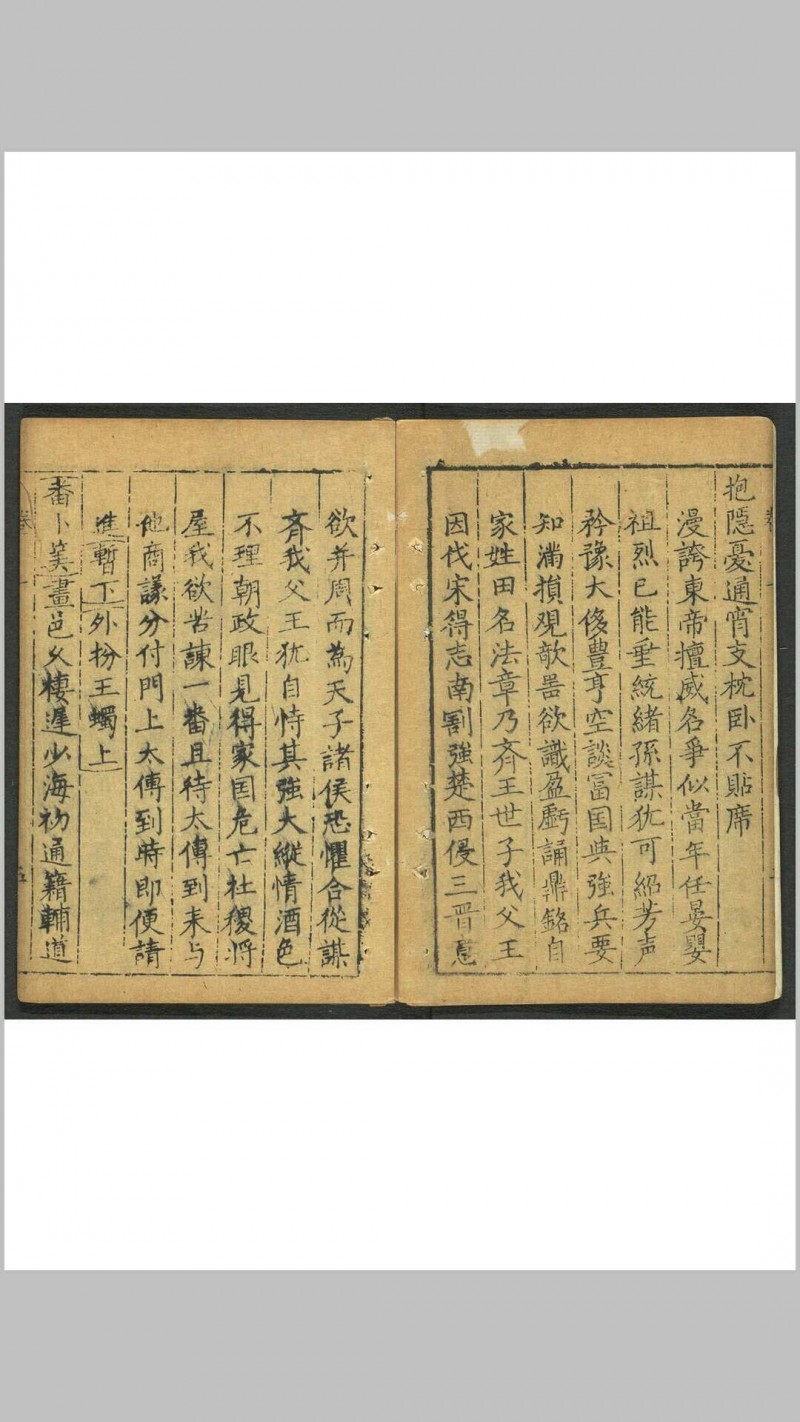 抱隱憂通宵支枕卧不貼席
漫誇東帝擅威名爭似當年任晏嬰
祖烈已能垂統緒孫謀犹可紹芳声
矜豫大侈豊亨空談冨国与強兵要
知滿損观欹噐欲識盈虧誦鼎銘自
家姓田名法章乃斉王世子我父王
因伐宋得志南割強楚西侵三晋意
欲并周而為天子諸侯恐懼合從謀
斉我父王犹自恃其強大縱情酒色
不理朝政眼見得家国危亡社稷将
屋我欲苦諫一番且待太傅到来与
他商議分付門上太傅到時即便請
進暫下外扮王蠋上
番卜筭畫邑久棲遲少海初通籍輔道